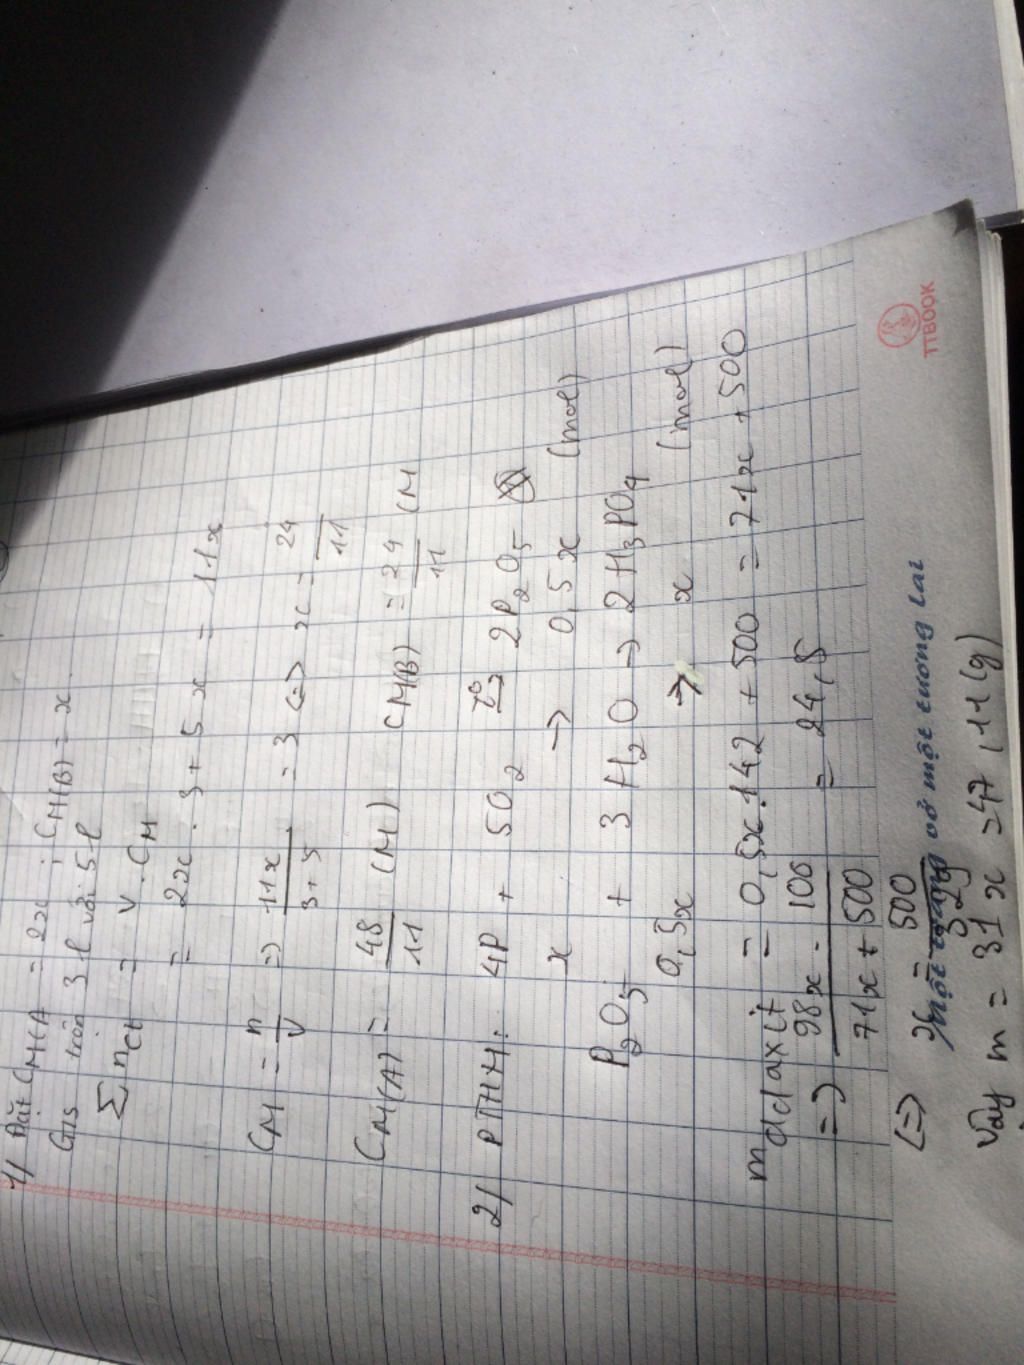 1/ Đặt CM(A = 2x ; CM(B) = x.
Gis trộn 3l với 5l
∑ nct = V. CM
= 2x . 3 + 5 x = 11x
CM = n/V => 11x/3+5 = 3 <=> x = 24/11
CM(A) = 48/11 (M) CM(B) = 24/11 (M
2/ PTHH: 4P + 5O2 t°-> 2P2O5
x -> 0,5x (mol)
P2O5 + 3H2O -> 2H3PO4
0,5x -> x (mol)
mddaxit = 0,5x.142 + 500 = 71x + 500
=> 98x . 100/71x + 500 = 24,5
<=> x = 500/329
Một trang vở một tương lai
Vậy m = 31x = 47,11(g)
TTBOOK